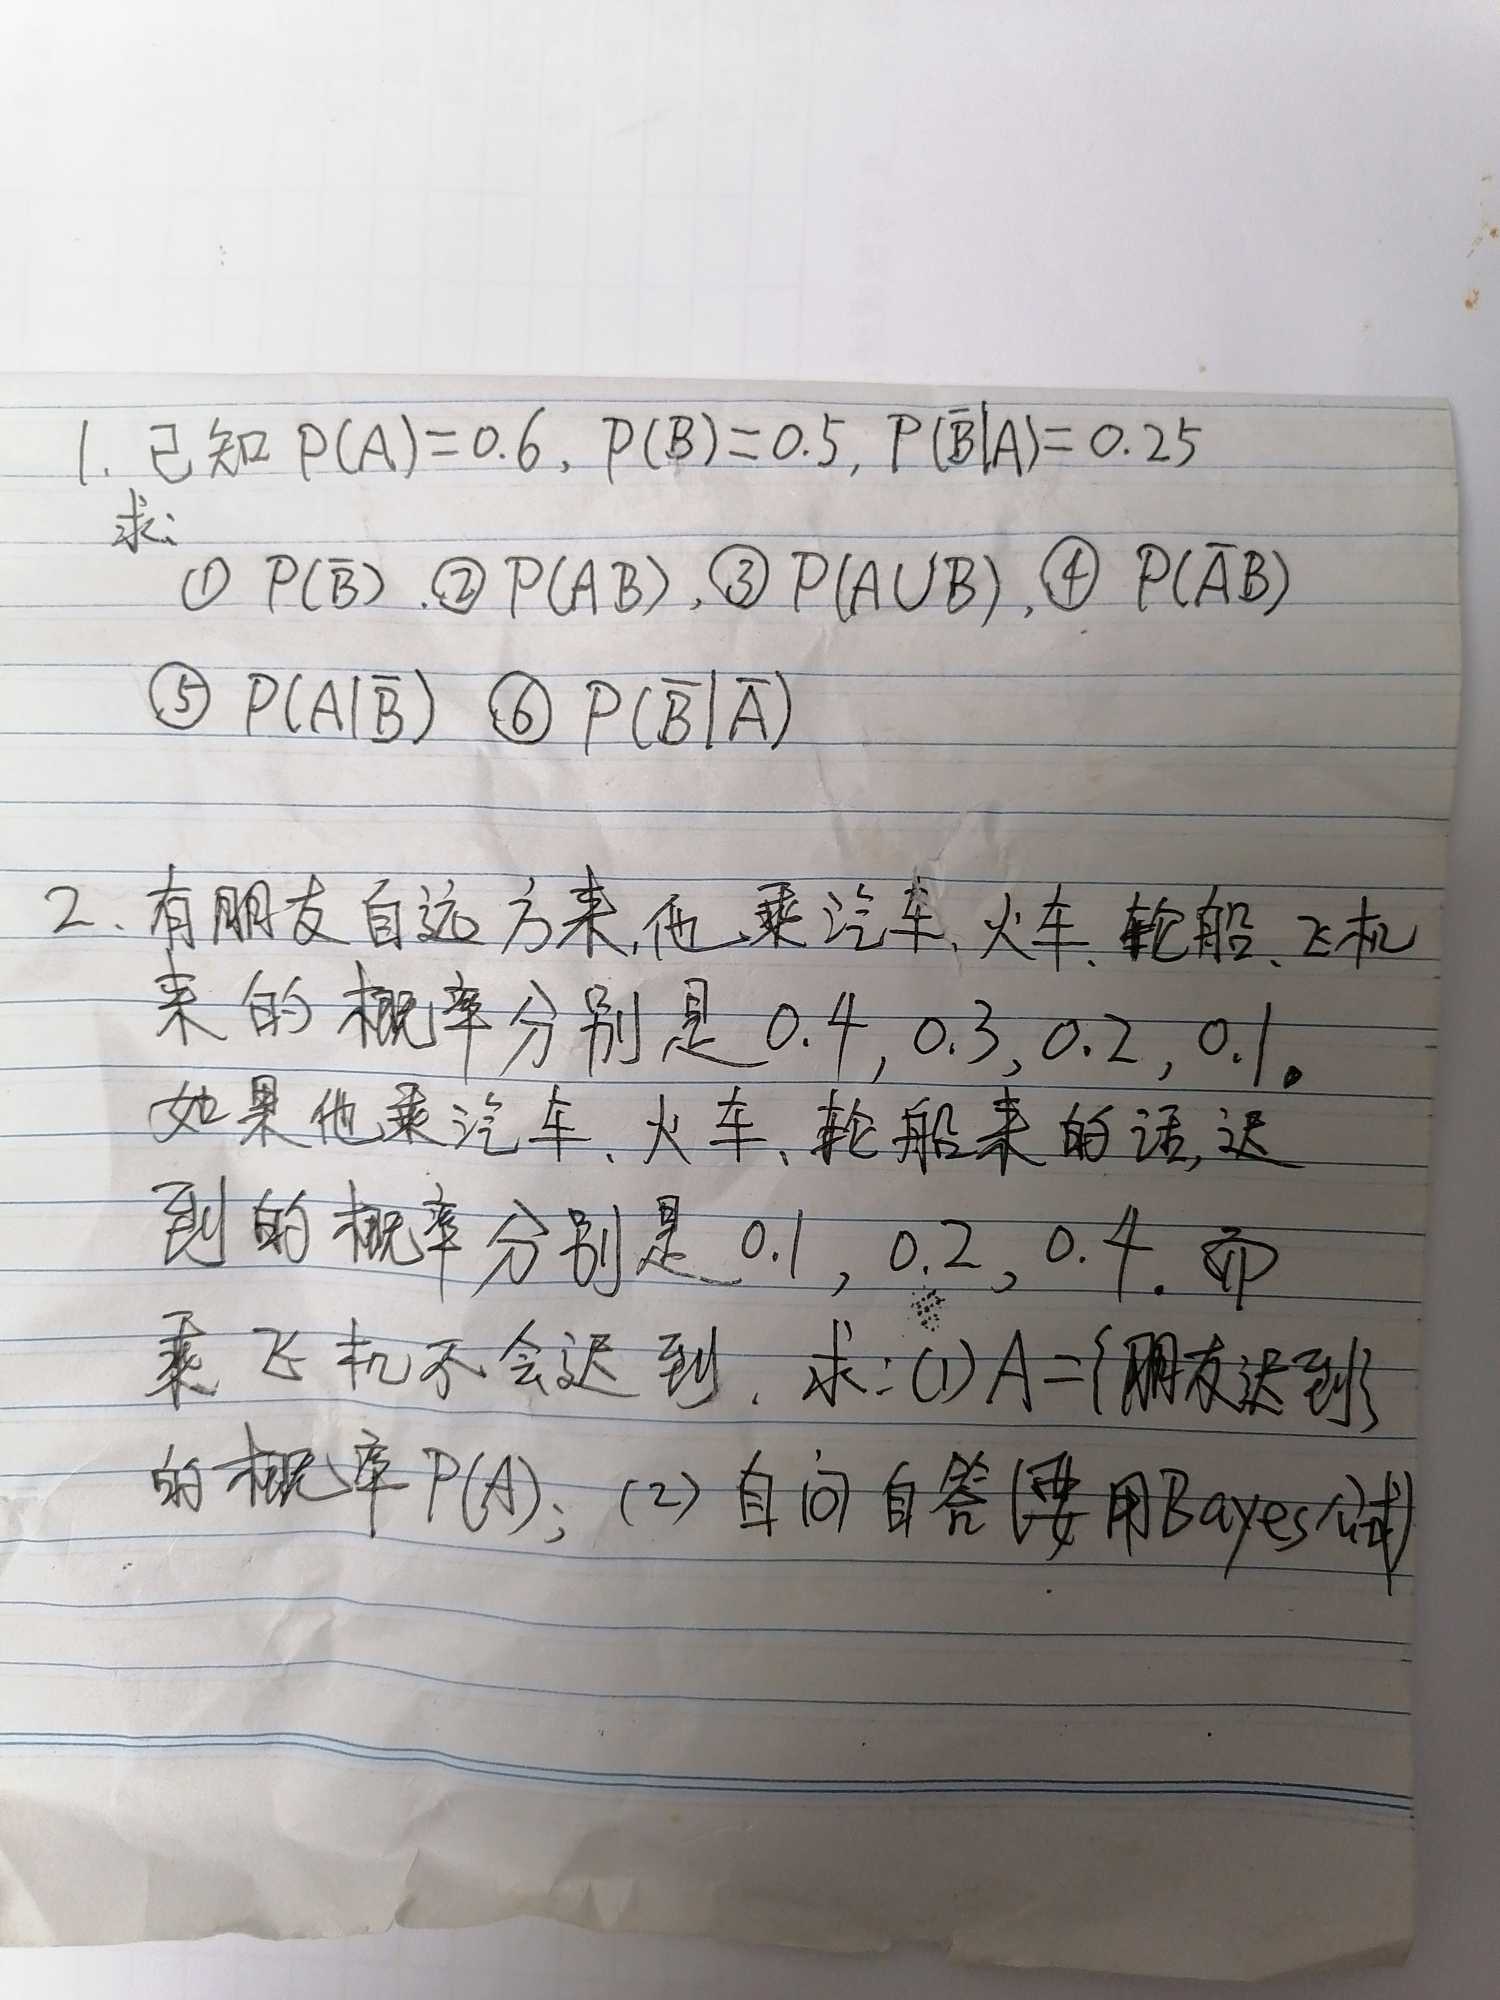 1. 已知 P(A)=0.6, P(B)=0.5, P(B̄|A)=0.25
求:
① P(B̄)、② P(AB), ③ P(A∪B), ④ P(ĀB)
⑤ P(A|B̄) ⑥ P(B̄|Ā)
2. 有朋友自远方来,他乘汽车、火车、轮船、飞机
来的概率分别是0.4, 0.3, 0.2, 0.1。
如果他乘汽车、火车、轮船来的话,迟
到的概率分别是0.1, 0.2, 0.4. 而
乘飞机不会迟到. 求:(1) A={朋友迟到}
的概率P(A); (2) 自问自答(要用Bayes公式)